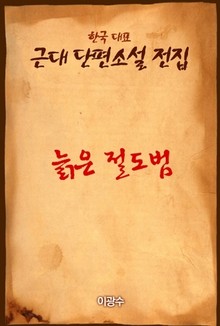 한국 대표
근대 단편소설 전집
늙은 절도범
이광수